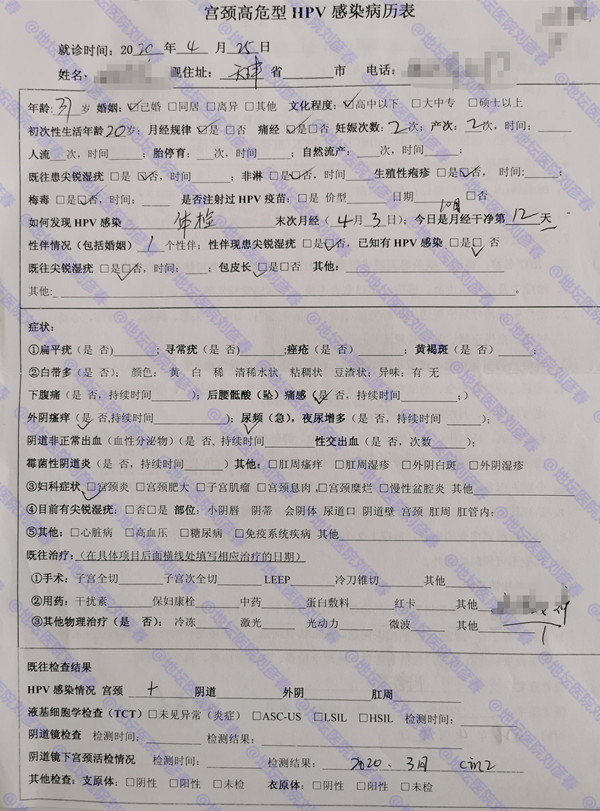 宫颈高危型 HPV 感染病历表
就诊时间：2020 年 4 月 25 日
姓名： 现住址：天津 省 市 电话：
年龄：37 岁 婚姻：☑已婚 □同居 □离异 □其他 文化程度：☑高中以下 □大中专 □硕士以上
初次性生活年龄 20 岁；月经规律 ☑是 □否 痛经 ☑是□否 妊娠次数：2 次；产次：2 次，时间
人流 次，时间 ；胎停育： 次，时间 ；自然流产： 次，时间
既往患尖锐湿疣 □是 ☑否，时间： ；非淋 □是☑否，时间 生殖性疱疹 □是☑否， 时间： ；
梅毒 □是☑否，时间： 是否注射过 HPV 疫苗：□是 价型 日期 □否
如何发现 HPV 感染 体检 末次月经（ 4 月 3 日）；今日是月经干净第 12 天
性伴情况（包括婚姻） 1 个性伴；性伴现患尖锐湿疣 □是☑否，已知有 HPV 感染 □是☑ 否
既往尖锐湿疣 □是☑否，时间： ；包皮长 ☑是□否 其他：
其他:
症状：
①扁平疣（是 否） ；寻常疣（是 否) ;痤疮（是 否） ；黄褐斑（是 否） ；
②白带多（是 否）； 颜色： 黄 白 稀 清稀水状 粘稠状 豆渣状；异味：有 无
下腹痛（是 否，持续时间 ）；后腰骶酸（坠）痛感（是 否,持续时间 ；）
外阴瘙痒（是 否,持续时间 ）；尿频（急），夜尿增多（是 否，持续时间 ）；
阴道非正常出血（血性分泌物）（是 否, 持续时间 性交出血（是 否，次数 ）；
霉菌性阴道炎（是 否，持续时间 ）其他：□肛周瘙痒 □肛周湿疹 □外阴白斑 □外阴湿疹
③妇科症状 ☑宫颈炎 □宫颈肥大 □子宫肌瘤 □宫颈息肉 □宫颈糜烂 □慢性盆腔炎 其他
④目前有尖锐湿疣：□否□是 部位：小阴唇 阴蒂 会阴体 尿道口 阴道壁 宫颈 肛周 肛管内；
⑤其他：□心脏病 □高血压 □糖尿病 □免疫系统疾病 其他
既往治疗：（在具体项目后面横线处填写相应治疗的日期）
①手术：子宫全切 子宫次全切 LEEP 冷刀锥切 其他
②用药：干扰素 保妇康栓 中药 蛋白敷料 红卡 其他
③其他物理治疗（是 否）： 冷冻 激光 光动力 微波 其他
既往检查结果
HPV 感染情况 宫颈 + 阴道 外阴 肛周
液基细胞学检查（TCT）□未见异常（炎症） □ASC-US □LSIL □HSIL 检测时间：
阴道镜检查 检测时间： 检测结果：
阴道镜下宫颈活检情况 检测时间： 检测结果： 2020、3月 cin2
其他检查：支原体：□阴性 □阳性 □未检 衣原体：□阴性 □阳性 □未检
@地坛医院刘彦春